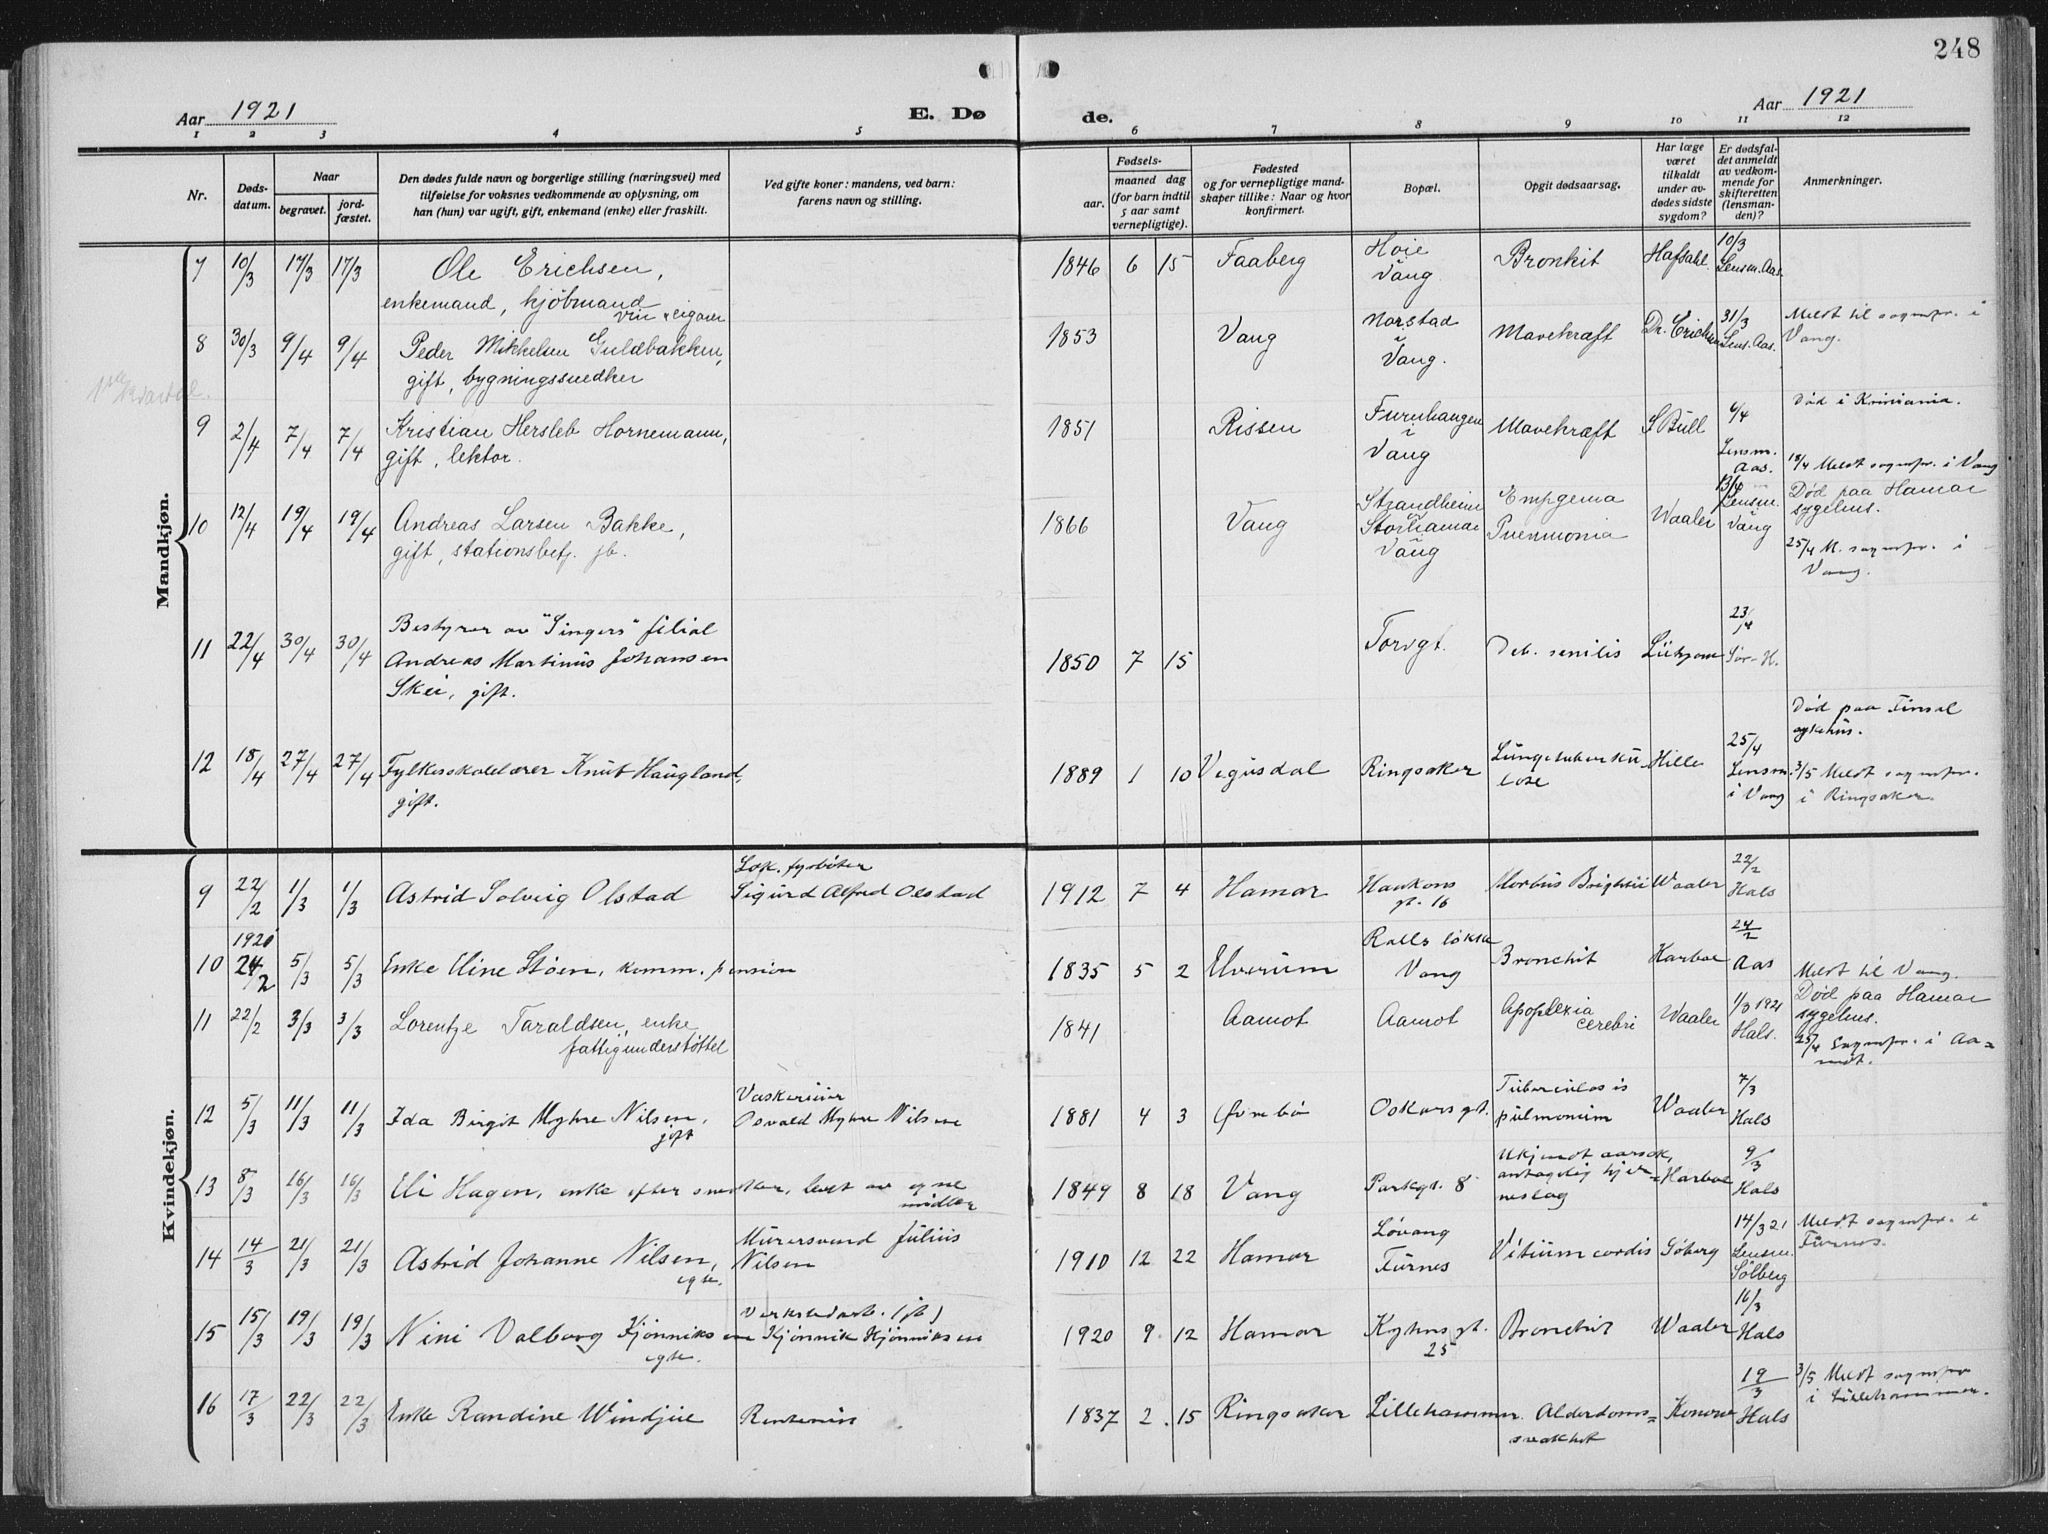 248
Aar 1921
E. Døde.
Aar 1921
1 2 3 4 5 6 7 8 9 10 11 12
Nr.
Døds-
datum.
Naar
begravet.
jord-
fæstet.
Den dødes fulde navn og borgerlige stilling (næringsvei) med
tilføielse for voksnes vedkommende av oplysning, om
han (hun) var ugift, gift, enkemand (enke) eller fraskilt.
Ved gifte koner: mandens, ved barn:
farens navn og stilling.
Fødsels-
aar.
maaned dag
(for barn indtil
5 aar samt
vernepligtige).
Fødested
og for vernepligtige mand-
skaper tillike: Naar og hvor
konfirmert.
Bopæl.
Opgit dødsaarsag.
Har læge
været
tilkaldt
under av-
dødes sidste
sygdom?
Er dødsfal-
det anmeldt
av vedkom-
mende for
skifteretten
(lensman-
den)?
Anmerkninger.
Mandkjøn.
7 10/3 17/3 17/3 Ole Erichsen,
enkemand, kjøbmand
vin
1846 6 15 Faaberg
Hoie
Vang
Bronkit
Hafsahl
10/3
Lensm. Aas.
8 30/3 9/4 9/4 Peder Mikkelsen Guldbakken,
gift, bygningssnedker
1853 Vang
Norstad
i
Vang.
Mavekræft
Dr. Erichsen
31/3
Lens. Aas.
Meldt til sognepr. i
Vang.
1ste kvartal.
9 2/4 7/4 7/4 Kristian Hersleb Hornemann,
gift, lektor.
1851 Rissen
Furuhaugen
i
Vang
Mavekræft
S Bull
6/4
Lensm.
Aas.
Død i Kristiania.
18/4 Meldt sognepr. i Vang
10 12/4 19/4 19/4 Andreas Larsen Bakke,
gift, stationsbetj. jb.
1866 Vang
Strandheim
Storhamar
Vang
Empyema
Pneumonia
Waaler
13/4
Lensm.
Vang
Død paa Hamar
sygehus.
25/4 M. sognepr. i
Vang.
11 22/4 30/4 30/4 Bestyrer av "Singers" filial
Andreas Martinus Johansen
Skei, gift.
1850 7 15
Torvgt.
Deb. senilis
23/4
Sør-H.
12 18/4 27/4 27/4 Fylkesskolelærer Knut Haugland,
gift.
1889 1 10 Vegusdal
Ringsaker
Lungetuberku-
lose
Hille
25/4
Lensm.
i Vang
Død paa Finsal
sykehus.
3/5 Meldt sognepr.
i Ringsaker.
Kvindekjøn.
9 22/2 1/3 1/3 Astrid Solveig Olstad
Lok. fyrbøter
Sigurd Alfred Olstad
1912 7 4 Hamar
Haakons
gt. 16
Morbus Brightii
Waaler
22/2
Hals
10 1921
24/2 5/3 5/3 Enke Eline Støen, komm. pension
1835 5 2 Elverum
Rolls løkke
Vang
Bronchit
Harboe
24/2
Aas
Meldt til Vang.
11 22/2 3/3 3/3 Lorentze Taraldsen, enke
fattigunderstøttet
1841 Aamot
Aamot
Apoplexia
cerebri
Waaler
1/3 1921
Hals.
Død paa Hamar
sygehus.
25/4 Sognepr. i Aa=
mot.
12 5/3 11/3 11/3 Ida Birgit Myhre Nilsen,
gift
Vaskerieier
Osvald Myhre Nilsen
1881 4 3 Øvrebø
Oskarsgt.
Tuberculosis
pulmonum
Waaler
7/3
Hals
13 8/3 16/3 16/3 Eli Hagen, enke efter snedker, levet av egne
midler
1849 8 18 Vang
Parkgt. 8
Ukjendt aarsak,
antagelig hjer=
neslag
Harboe
9/3
Hals
14 14/3 21/3 21/3 Astrid Johanne Nilsen,
egte.
Murersvend Julius
Nilsen
1910 12 22 Hamar
Løvang
Furnes
Vitium cordis
Søberg
14/3 21
Lensm.
Sølberg
Meldt sognepr. i
Furnes.
15 15/3 19/3 19/3 Nini Valborg Kjønniksen
egte.
Verkstedarb. (jb)
Kjønnik Kjønniksen
1920 9 12 Hamar
Kyhnsgt.
25
Bronchit
Waaler
16/3
Hals
16 17/3 22/3 22/3 Enke Randine Windjue
Rentenist
1837 2 15 Ringsaker
Lillehammer.
Alderdoms=
svakhet
Konow
19/3
Hals
3/5 Meldt sognepr
i Lillehammer.